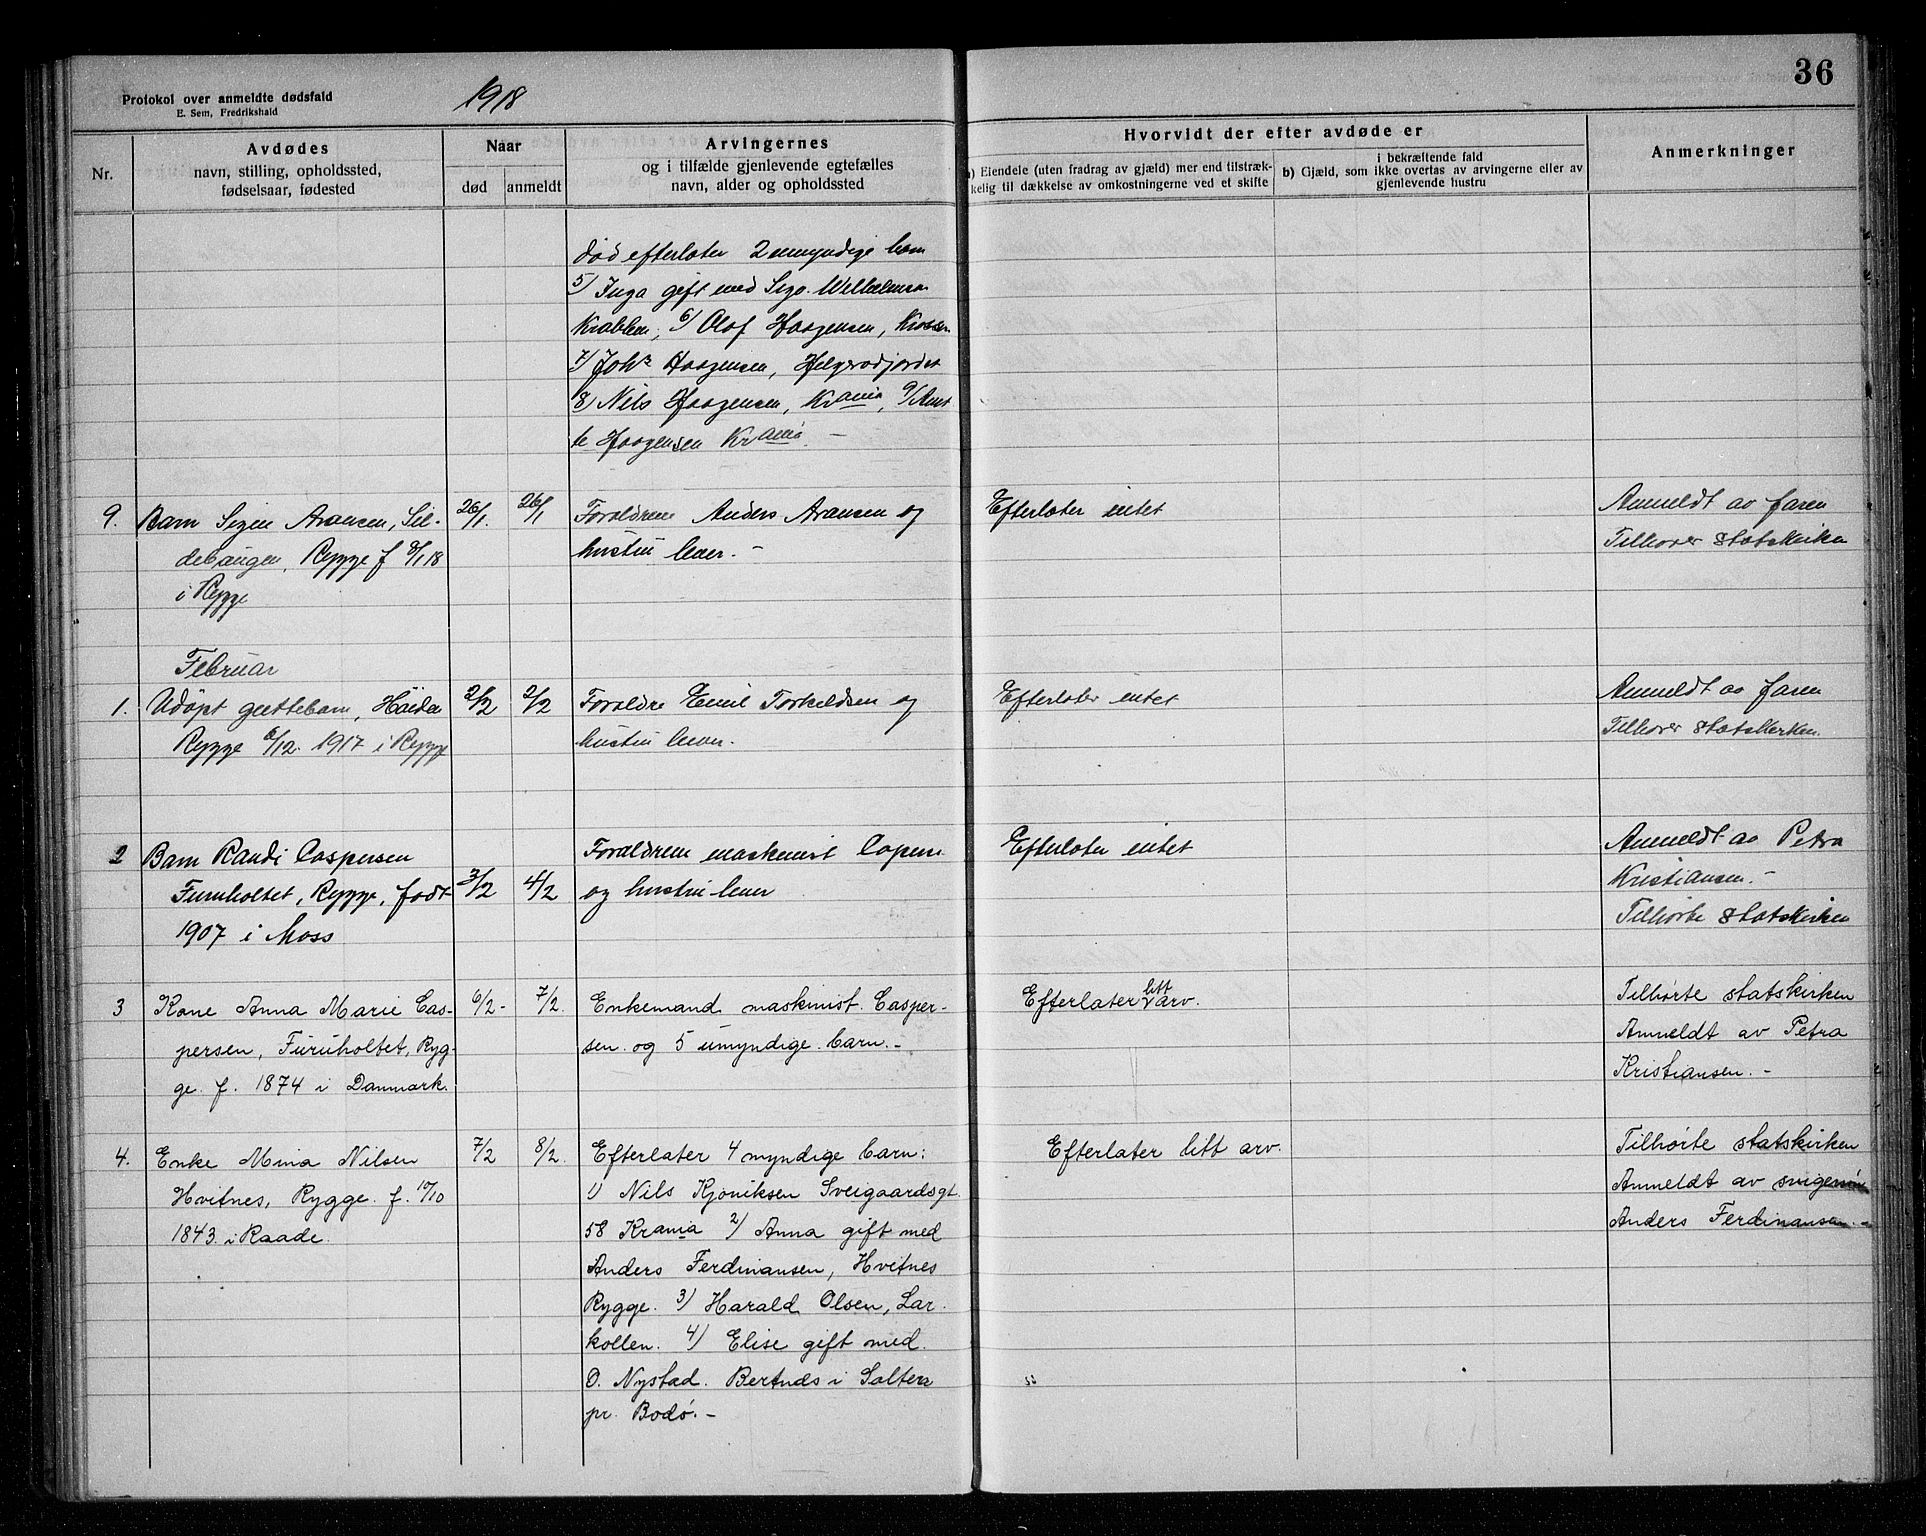 36
Protokol over anmeldte dødsfald
E. Sem, Fredrikshald
1918
Nr.
Avdødes
navn, stilling, opholdssted,
fødselsaar, fødested
Naar
død
anmeldt
Arvingernes
og i tilfælde gjenlevende egtefælles
navn, alder og opholdssted
Hvorvidt der efter avdøde er
a) Eiendele (uten fradrag av gjæld) mer end tilstræk-
kelig til dækkelse av omkostningerne ved et skifte
i bekræftende fald
b) Gjæld, som ikke overtas av arvingerne eller av
gjenlevende hustru
Anmerkninger
død efterlater 2 umyndige barn
5) Inga gift med
6) Olaf Haagensen,
7) Johs Haagensen, Helgerødjordet
8) Nils Haagensen, Krania, 9)
Haagensen Krania. -
9. Barn
Rygge f 8/1 18
i Rygge
26/1.
26/1
Forældrene Anders Aransen og
hustru lever. -
Efterlater intet
Anmeldt av faren
Tilhører statskirken
Februar
1. Udøpt guttebarn,
Rygge 6/12. 1917 i Rygge
2/2
2/2
Forældre Emil Torkildsen og
hustru lever.
Efterlater intet
Anmeldt av faren
Tilhører statskirken.
2 Barn Randi Caspersen
Furuholtet, Rygge, født
1907 i Moss
3/2
4/2
Forældrene maskinist
og hustru lever
Efterlater intet
Anmeldt av Petra
Kristiansen. -
Tilhørte statskirken
3 Kone Anna Marie Cas-
persen, Furuholtet, Ryg-
ge. f. 1874 i Danmark.
6/2 -
7/2.
Enkemand maskinist. Casper-
sen. og 5 umyndige. barn. -
Efterlater litt arv.
Tilhørte statskirken
Anmeldt av Petra
Kristiansen. -
4. Enke Mina Nilsen
Hvitnes, Rygge. f. 10/10
1843. i Raade.
7/2
8/2.
Efterlater 4 myndige barn:
1) Nils Kjøniksen Sveigaardsgt.
58 Krania 2) Anna gift med
Anders Ferdinansen, Hvitnes
Rygge. 3) Harald Olsen, Lar-
kollen. 4) Elise gift med.
O. Nystad. Bertnes i Salten
pr. Bodø. -
Efterlater litt arv.
Tilhørte statskirken
Anmeldt av
Anders Ferdinansen. -